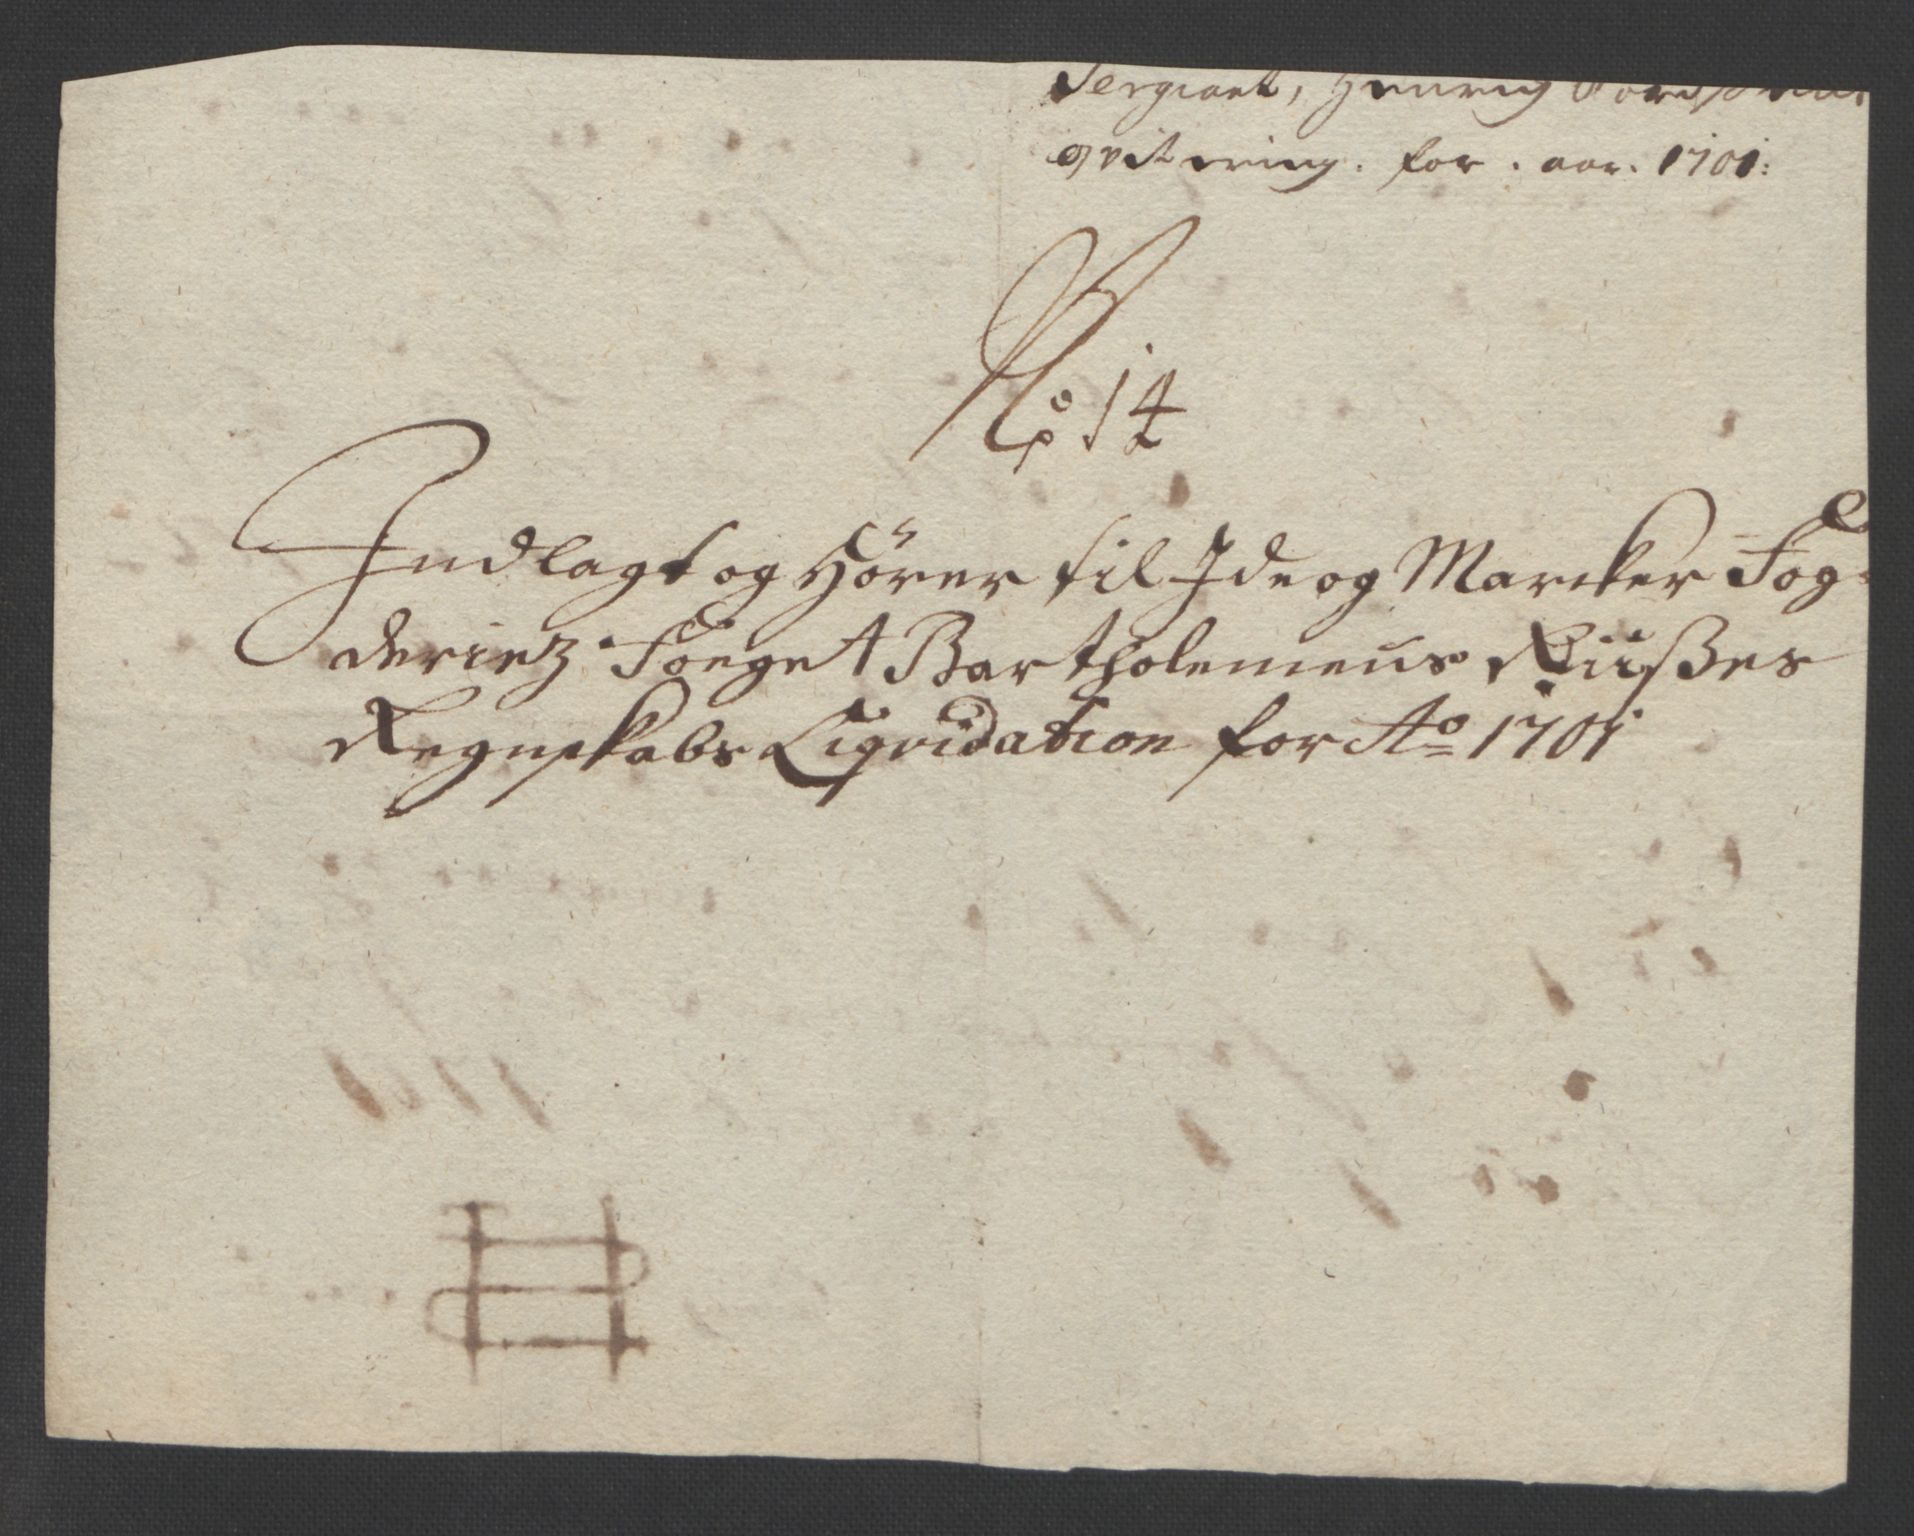 Sergiant, Henrich
qvitering. for. aar. 1701:
No 14
Indlagt og Hörer til Ide og Marcker Fog-
deriez Foeget Bartholemeus Rüßes
Regnskabs Liqvidation for Ao 1701